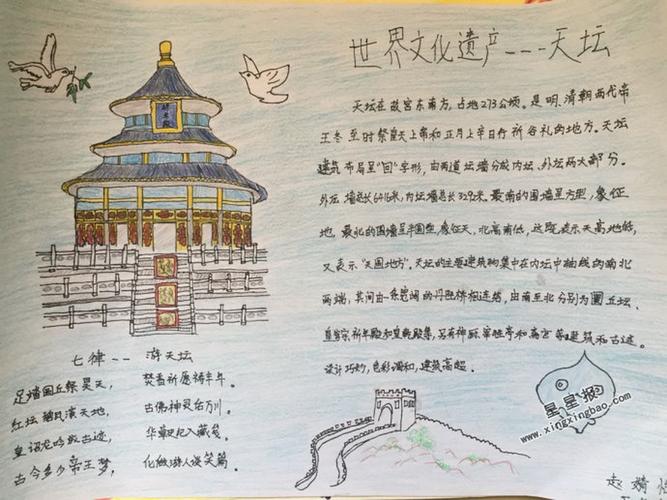 世界文化遗产---天坛
天坛在故宫东南方,占地273公顷。是明、清朝两代帝
王冬至时祭皇天上帝和正月上辛日行祈谷礼的地方。天坛
建筑布局呈“回”字形,由两道坛墙分成内坛、外坛两大部分。
外坛墙总长6416米,内坛墙总长3292米。最南的围墙呈方型,象征
地,最北的围墙呈半圆型,象征天,北高南低,这既表示天高地低,
又表示“天圆地方”。天坛的主要建筑物集中在内坛中轴线的南北
两端,其间由一条宽阔的丹陛桥相连结,由南至北分别为圜丘坛、
皇穹宇祈年殿和皇乾殿等,另有神厨、宰牲亭和斋宫等建筑和古迹。
设计巧妙,色彩调和,建筑高超。
七律--游天坛
足踏圜丘祭昊天, 焚香祈愿祷丰年。
红坛 天地, 古佛神灵 川。
皇 龙吟 古迹, 华 入藏 。
古今多少帝王梦, 化做游人谈笑篇。
星星报
www.xingxingbao.com
赵